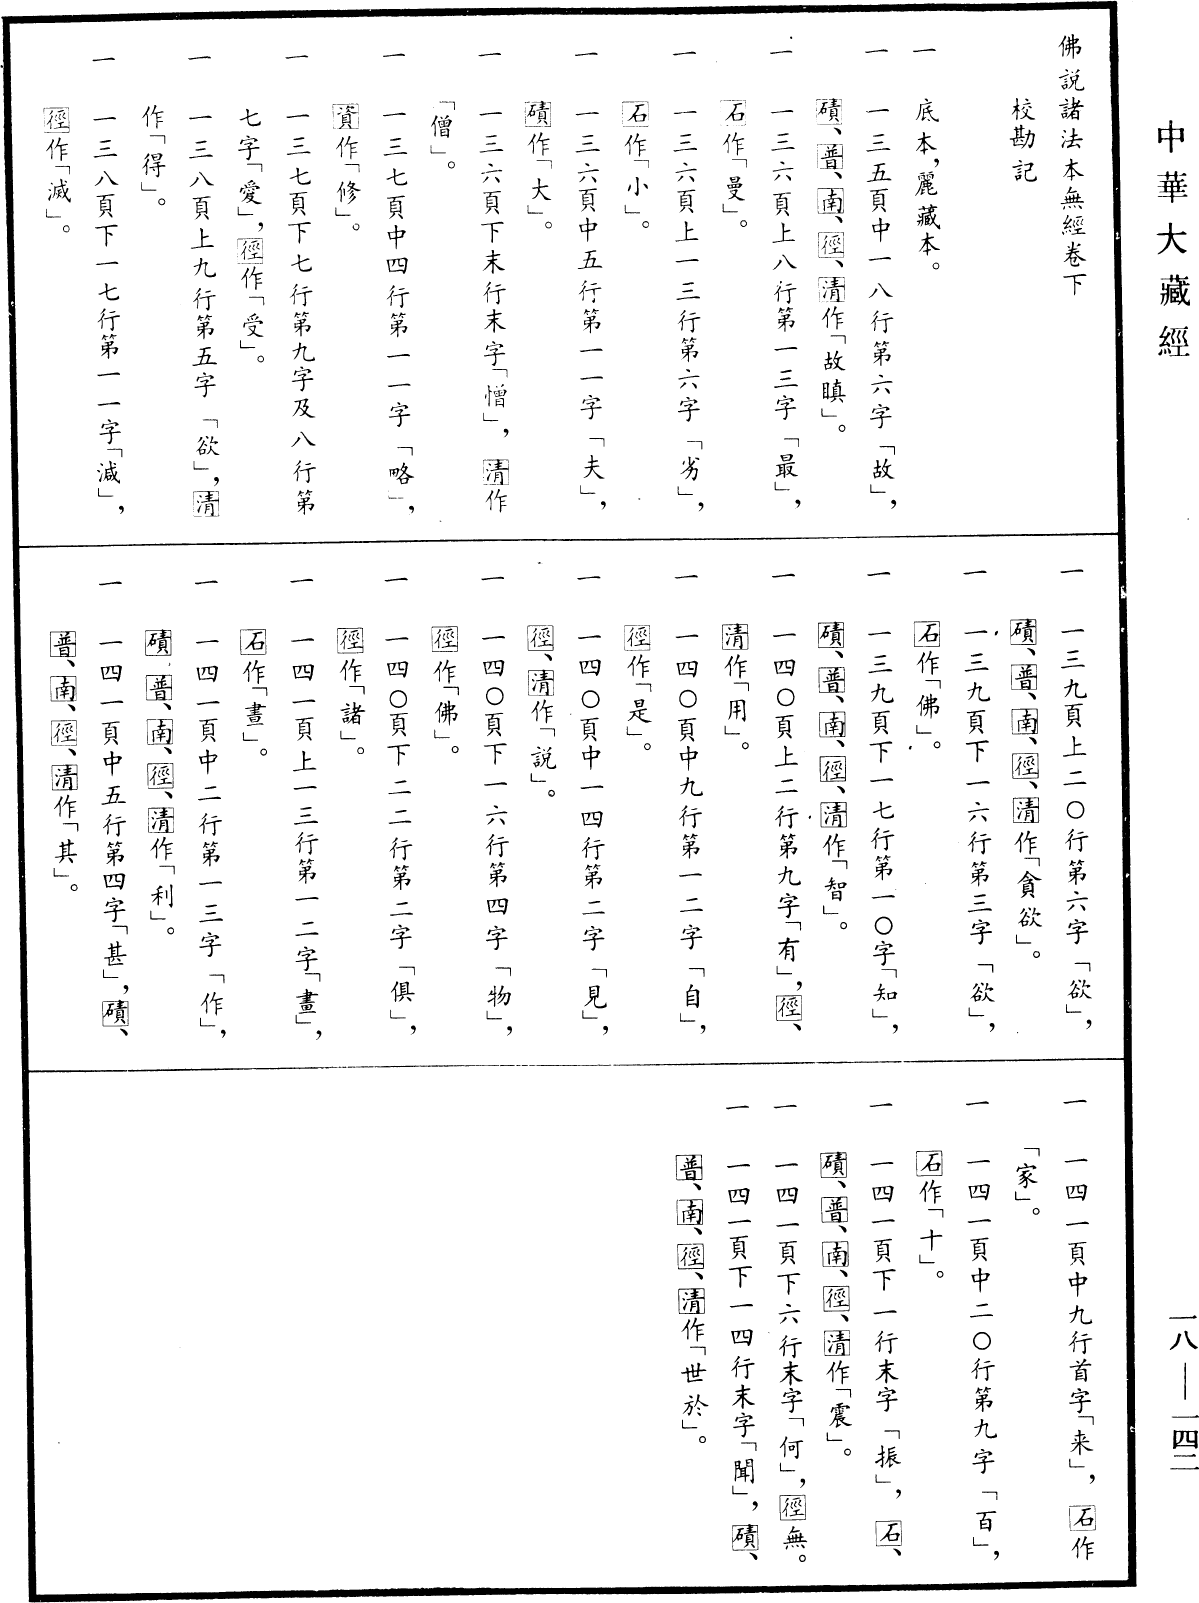 中華大藏經
一八—一四二
佛説諸法本無經卷下
校勘記
一　底本，麗藏本。
一　一三五頁中一八行第六字「故」，
磧、普、南、徑、清作「故瞋」。
一　一三六頁上八行第一三字「最」，
石作「曼」。
一　一三六頁上一三行第六字「劣」，
石作「小」。
一　一三六頁中五行第一一字「夫」，
磧作「大」。
一　一三六頁下末行末字「憎」，清作
「僧」。
一　一三七頁中四行第一一字「略」，
資作「修」。
一　一三七頁下七行第九字及八行第
七字「愛」，徑作「受」。
一　一三八頁上九行第五字「欲」，清
作「得」。
一　一三八頁下一七行第一一字「減」，
徑作「滅」。
一　一三九頁上二〇行第六字「欲」，
磧、普、南、徑、清作「貪欲」。
一　一三九頁下一六行第三字「欲」，
石作「佛」。
一　一三九頁下一七行第一〇字「知」，
磧、普、南、徑、清作「智」。
一　一四〇頁上二行第九字「有」，徑、
清作「用」。
一　一四〇頁中九行第一二字「自」，
徑作「是」。
一　一四〇頁中一四行第二字「見」，
徑、清作「説」。
一　一四〇頁下一六行第四字「物」，
徑作「佛」。
一　一四〇頁下二二行第二字「俱」，
徑作「諸」。
一　一四一頁上一三行第一二字「畫」，
石作「晝」。
一　一四一頁中二行第一三字「作」，
磧、普、南、徑、清作「利」。
一　一四一頁中五行第四字「甚」，磧、
普、南、徑、清作「其」。
一　一四一頁中九行首字「来」，石作
「家」。
一　一四一頁中二〇行第九字「百」，
石作「十」。
一　一四一頁下一行末字「振」，石、
磧、普、南、徑、清作「震」。
一　一四一頁下六行末字「何」，徑無。
一　一四一頁下一四行末字「聞」，磧、
普、南、徑、清作「世於」。